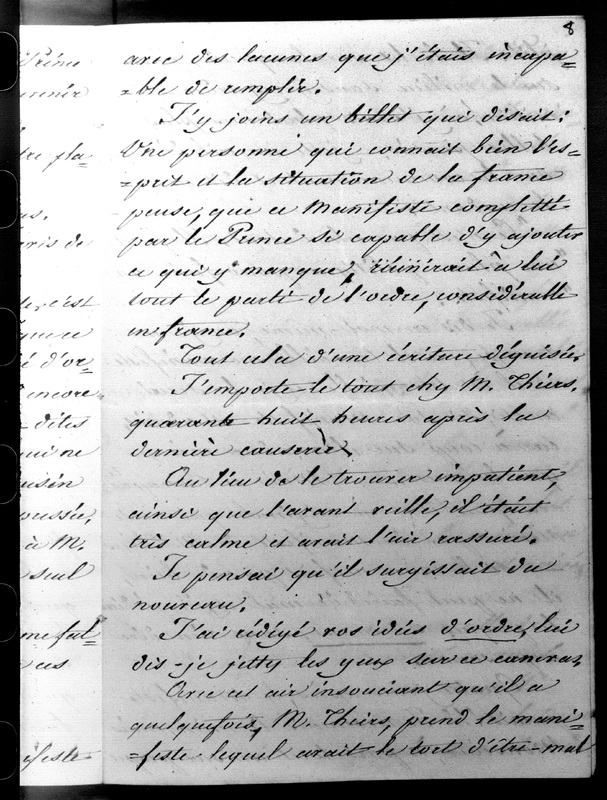 8
avec des lacunes que j'étais incapa=
=ble de remplir.
J'y joins un billet qui disait:
Une personne qui connait bien l'es=
=prit et la situation de la france
pense, que ce Manifeste complette
par le Prince si capable d'y ajouter
ce qui y manque, réunirait à lui
tout le parti de l'ordre, considérable
en france.
Tout cela d'une écriture déguisée.
J'emporte le tout chez M. Thiers,
quarante huit heures après la
dernière causerie.
Au lieu de le trouver impatient,
ainsi que l'avant veille, il était
très calme et avait l'air rassuré.
Je pensai qu'il surgissait du
nouveau.
J'ai rédigé vos idées d'ordre, lui
dis-je jettez les yeux sur ce canevas,
Avec cet air insouciant qu'il a
quelquefois, M. Thiers, prend le mani=
=feste lequel avait le tort d'être mal
Prince
tre pla=
us.
ris de
c'est
que ce
é d'or=
encore.
dites
qui ne
usin
oussée,
à M.
seul
me fal=
ces
ifeste